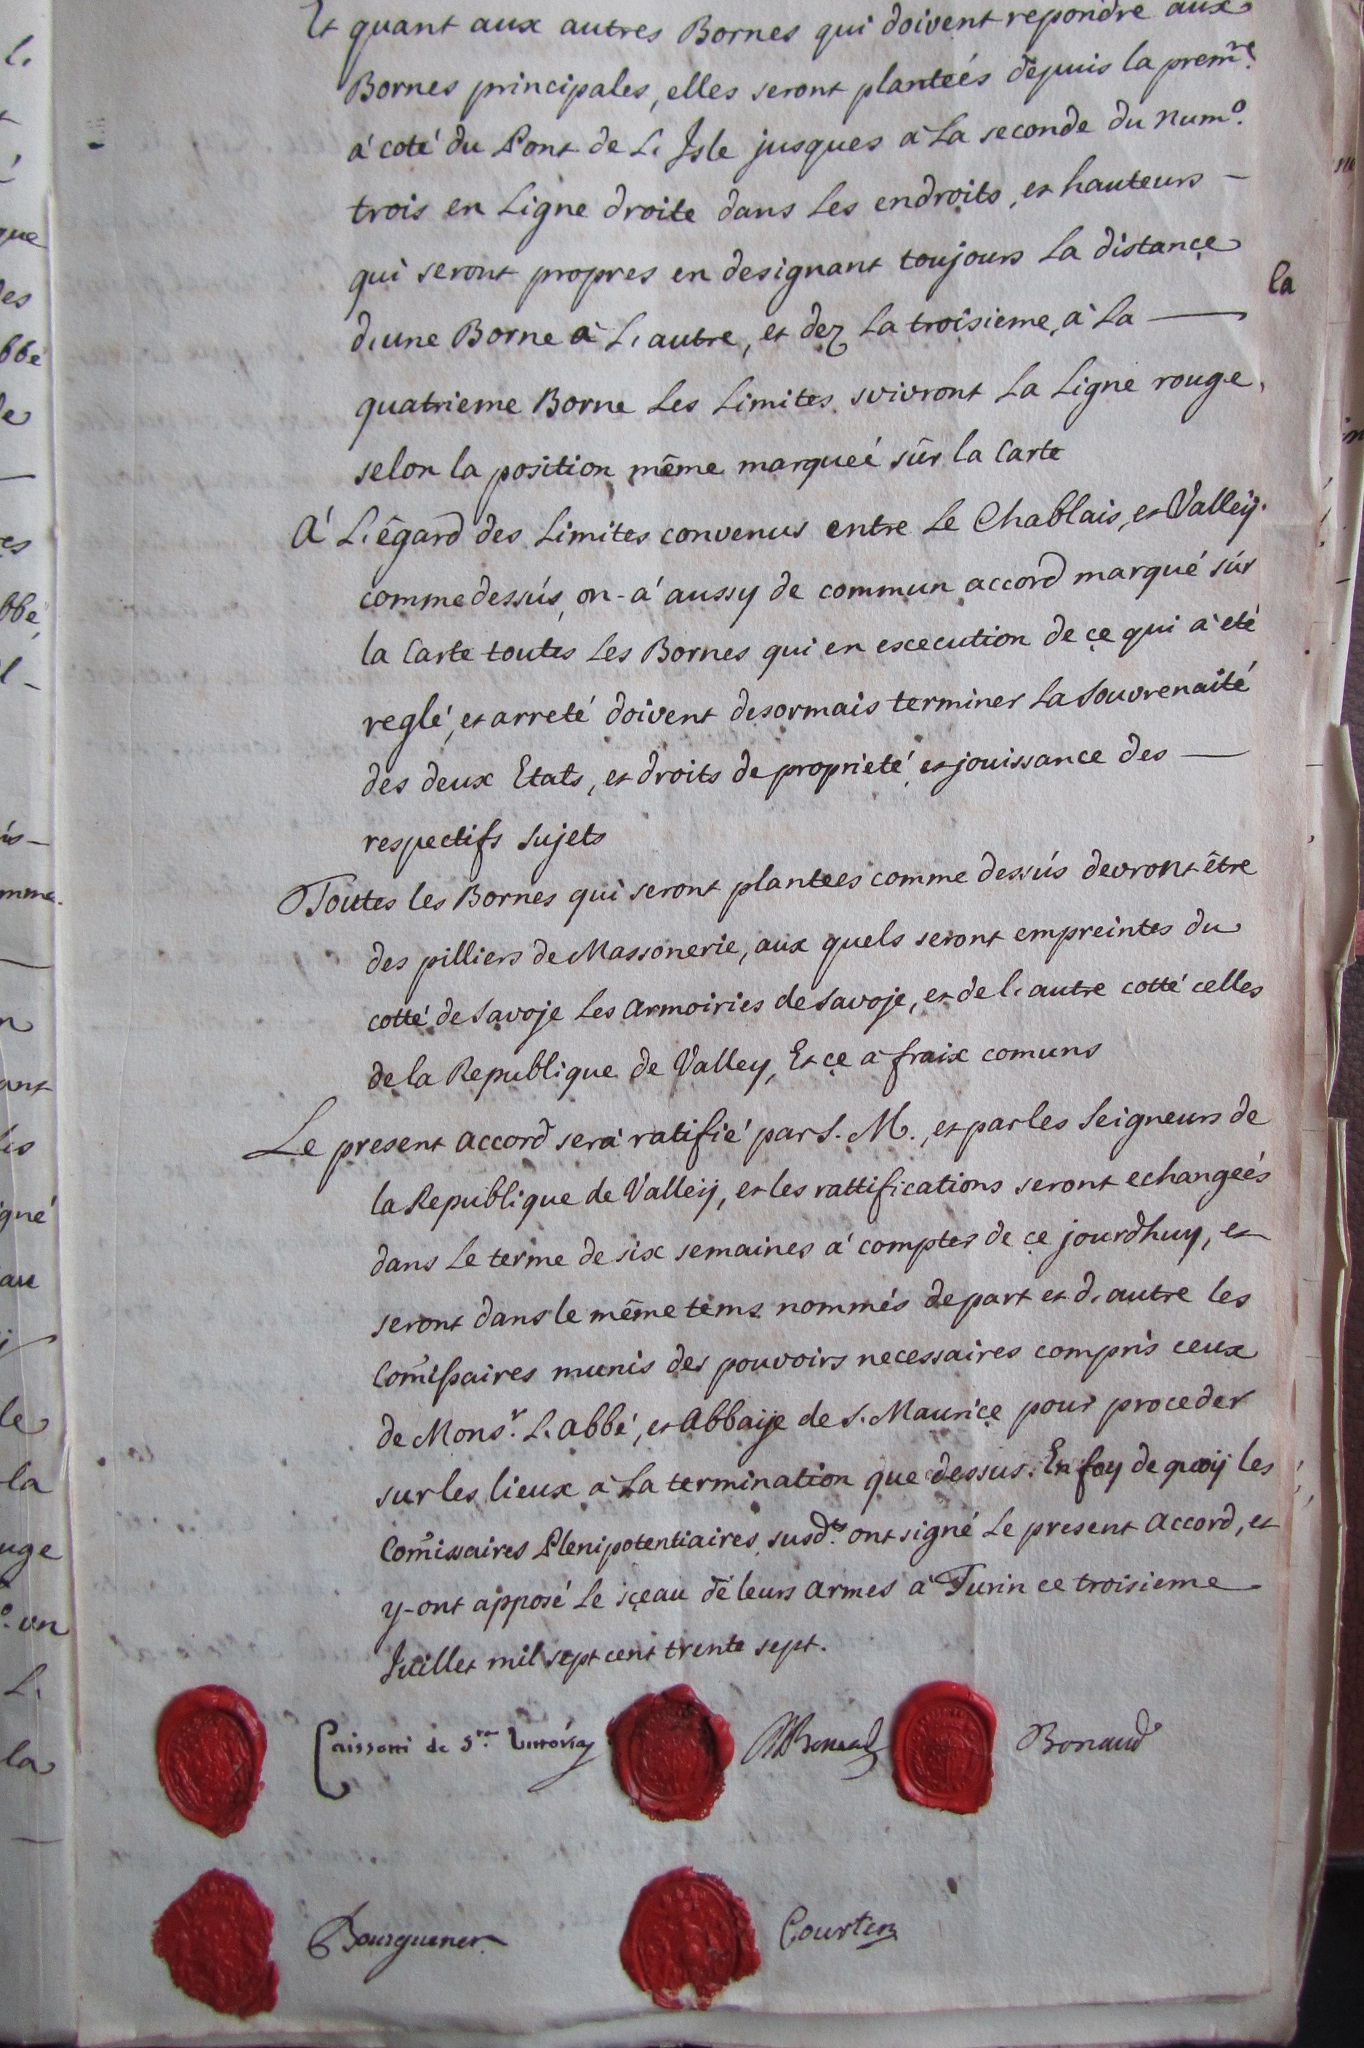 Et quant aux autres Bornes qui doivent repondre aux
Bornes principales, elles seront planteés depuis la premre.
á coté du Pont de L. Isle jusques a la seconde du numo.
trois en Ligne droite dans les endroits, et hauteurs —
qui seront propres en designant toujours la distance
d'une Borne à L. autre, et dez la troisieme, à la —
quatrieme Borne les Limites suivront la Ligne rouge,
selon la position même marqueé sûr la Carte
A' L. égard des Limites convenus entre le Chablais, et Valley.
comme dessús, on-a' aussy de commun accord marqué súr
la Carte toutes les Bornes qui en excecution de çe qui a' eté
reglé, et arreté doivent desormais terminer la Souvrenaité
des deux Etats, et droits de proprieté, et jouissance des —
respectifs Sujets
Toutes les Bornes qui seront plantees comme dessús devront être
des pilliers de Massonerie, aux quels seront empreintes du
cotté de Savoje les armoiries de Savoje, et de l. autre cotté celles
de la Republique de Valley, Et çe a fraix comuns
Le present accord será ratifié par S. M., et par les Seigneurs de
la Republique de Valleÿ, et les rattifications seront echangeés
dans le terme de six semaines a' compter de çe jourdhuy, et
seront dans le même tems nommés de part et d. autre les
Comissaires munis des pouvoirs necessaires compris ceux
de Monsr. L. abbé, et abbaije de S. Mauriçe pour proceder
sur les lieux a la termination que dessus. En foy de quoij les
Comissaires Plenipotentiaires susdts. ont signé le present accord, et
y-ont apposé le sçeau de leurs armes a' Turin ce troisieme
Juillet mil sept cent trente sept.
Caissotti de Sta. Vittória
Bonaud
Bourguener
Courten
la